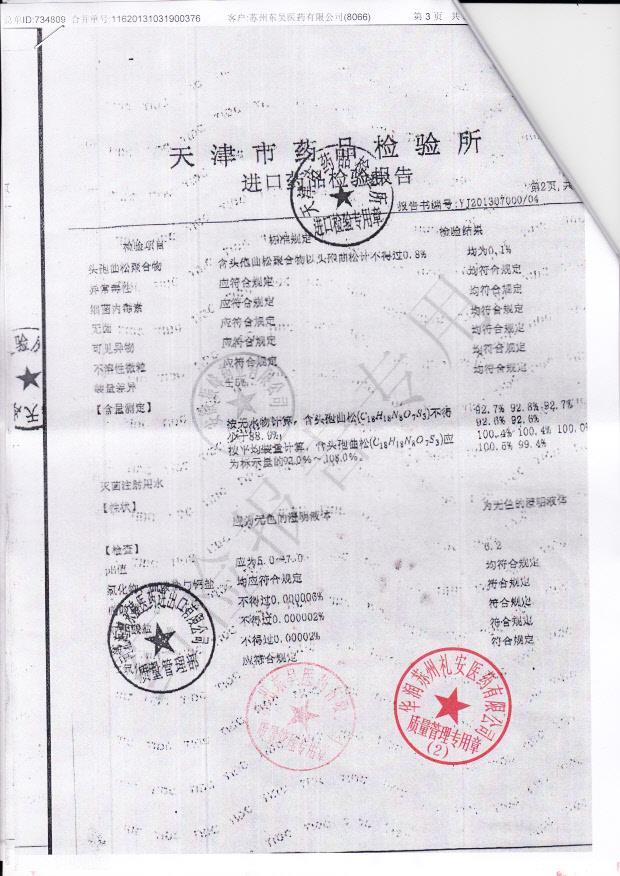 总单ID:734809 合并单号:11620131031900376 客户:苏州东吴医药有限公司(8066) 第 3 页 共
天津市药品检验所
进口药品检验报告
第2页,共
报告书编号:YJ201307000/04
检验项目 标准规定 检验结果
头孢曲松聚合物 含头孢曲松聚合物以头孢曲松计不得过0.8% 均为0.1%
异常毒性 应符合规定 均符合规定
细菌内毒素 应符合规定 均符合规定
无菌 应符合规定 均符合规定
可见异物 应符合规定 均符合规定
不溶性微粒 应符合规定 均符合规定
装量差异 ±5% 均符合规定
【含量测定】 按无水物计算,含头孢曲松(C18H18N8O7S3)不得 92.7% 92.8% 92.7%
少于88.0%; 92.6% 92.6%
按平均装量计算,含头孢曲松(C18H18N8O7S3)应 100.4% 100.4% 100.0%
为标示量的92.0%~108.0%。 100.6% 99.4%
灭菌注射用水
【性状】 应为无色的澄明液体 为无色的澄明液体
【检查】
pH值 应为5.0~7.0 6.2
氯化物 与钙盐 均应符合规定 均符合规定
不得过0.000006% 符合规定
不得过0.000002% 符合规定
不得过0.00002% 符合规定
应符合规定 符合规定
天津市药品检验所
进口检验专用章
医药进出口有限公司
质量管理部
华润苏州礼安医药有限公司
质量管理专用章
(2)
检验报告专用